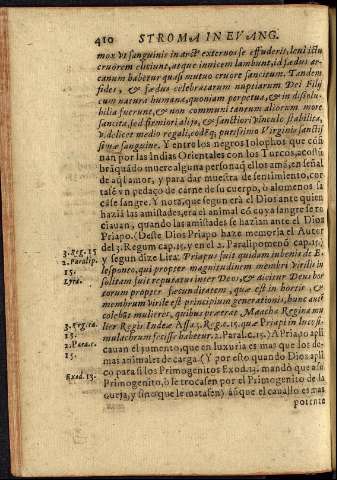 410 STROMA IN EVANG.
mox vt sanguinis in arct[us] externos se effuderit, leni ictu
cruorem eliciunt, atque inuicem lambunt, id fædus ar-
canum habetur quasi mutuo cruore sancitum. Tandem
fides, & fædus celebratarum nuptiarum Dei Filij
cum natura humana, quoniam perpetua, & in dissolu-
bilia fuerunt, & non communi tantum aliorum more
sancita, sed firmiori aliŋ, & sanctiori vinculo stabilita,
v. delicet medio regali, eodēq; purissimo Virginis sanctis
simæ sanguine. Y entre los negros Iolophos que con
nan por las Indias Orientales con los Turcos, acostū
brā quādo muere alguna persona q̃ ellos amā, en señal
de aq̃l amor, y para dar muestra de sentimiento, cor
tarsē vn pedaço de carne de su cuerpo, ò alomenos sa
carse sangre. Y nota, que segun era el Dios ante quien
hazia las amistades, era el animal cō cuya sangre se ro
ciauan, quando las amistades se hazian ante el Dios
Priapo. (Deste Dios Priapo haze memoria el Autor
3. Reg. 15 del 3. Regum cap. 15. y en el 2. Paralipomenō cap. 15.
2. Paralip. y segun dize Lira: Priapus fuit quidam iuuenis de E-
15. lesponto, qui propter magnitudinem membri virilis in
Lyra. solitam fuit reputatus inter Deos, & dicitur Deus hor
torum propter fæcunditatem, quæ est in hortis, &
membrum virile est principium generationis, hunc autē
colebāt mulieres, quibus præerat Maacha Regina mu
3. Reg. ca. lier Regis Iudeæ Assa 3. Reg. c. 15. quæ Priapi in luco si-
15. mulachrum fecisse habetur. 2. Paral. c. 15.) A Priapo apli
2. Para. c. cauan el jumento, que en luxuria es mas que los de-
15. mas animales de carga. (Y por esto quando Dios apli
Exod. 13. co para si los Primogenitos Exod. 13. mandò que a su
Primogenito, ò se trocasen por el Primogenito de la
oueja, y sino que le matasen) aũque el cauallo es mas
potente